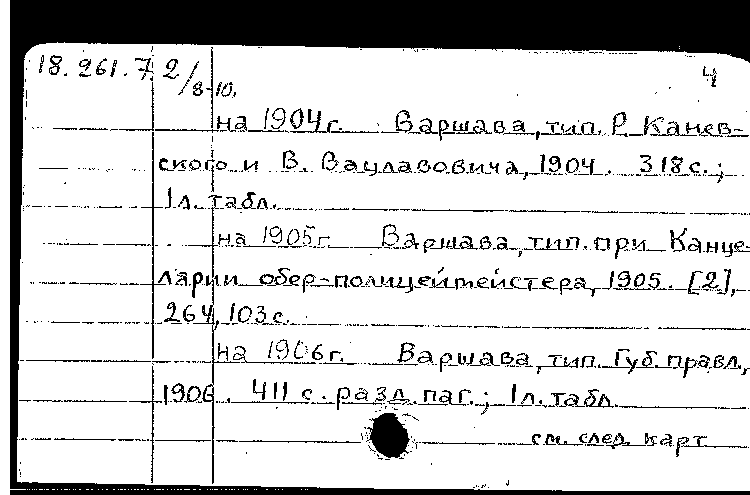 18.261.7.2/8-10.
4
на 1904г. Варшава, тип. Р. Канев-
ского и В. Вацлавовича, 1904. 318с.;
1л. табл.
на 1905г. Варшава, тип. при Канце-
лярии обер-полицеймейстера, 1905. [2],
264, 103с.
на 1906г. Варшава, тип. Губ. правл.,
1906. 411 с. разд. паг.; 1л. табл.
см. след. карт